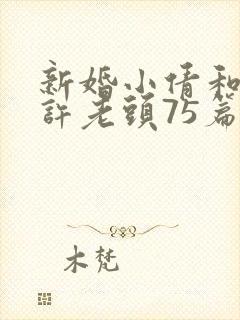 新婚小倩和
許老頭75篇
木梵